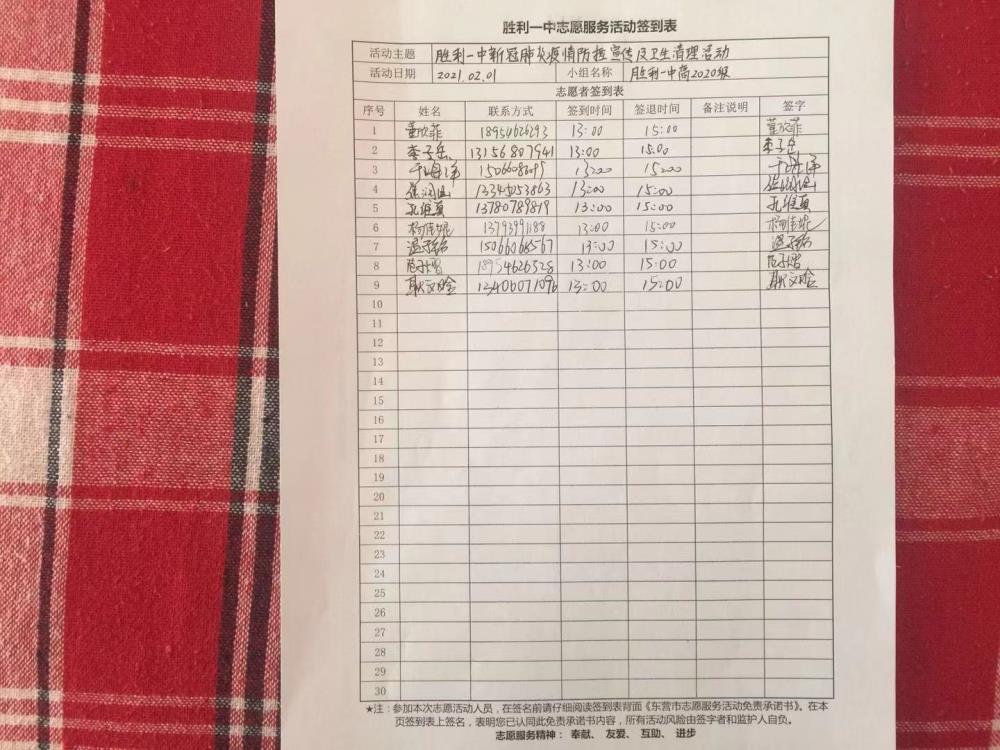 胜利一中志愿服务活动签到表
活动主题 胜利一中新冠肺炎疫情防控宣传及卫生清理活动
活动日期 2021.02.01 小组名称 胜利一中高2020级
志愿者签到表
序号 姓名 联系方式 签到时间 签退时间 备注说明 签字
1 董欣菲 18954626293 13:00 15:00 董欣菲
2 李子岳 13156807941 13:00 15:00 李子岳
3 于海洋 13:00 15:00 于海洋
4 13345053863 13:00 15:00
5 孔维夏 13780789819 13:00 15:00 孔维夏
6 杨佳妮 13793991188 13:00 15:00 杨佳妮
7 温子铭 15066068567 13:00 15:00 温子铭
8 18954626528 13:00 15:00
9 耿文晗 13:00 15:00 耿文晗
10
11
12
13
14
15
16
17
18
19
20
21
22
23
24
25
26
27
28
29
30
★注：参加本次志愿活动人员，在签名前请仔细阅读签到表背面《东营市志愿服务活动免责承诺书》。在本
页签到表上签名，表明您已认同此免责承诺书内容，所有活动风险由签字者和监护人自负。
志愿服务精神： 奉献、 友爱、 互助、 进步